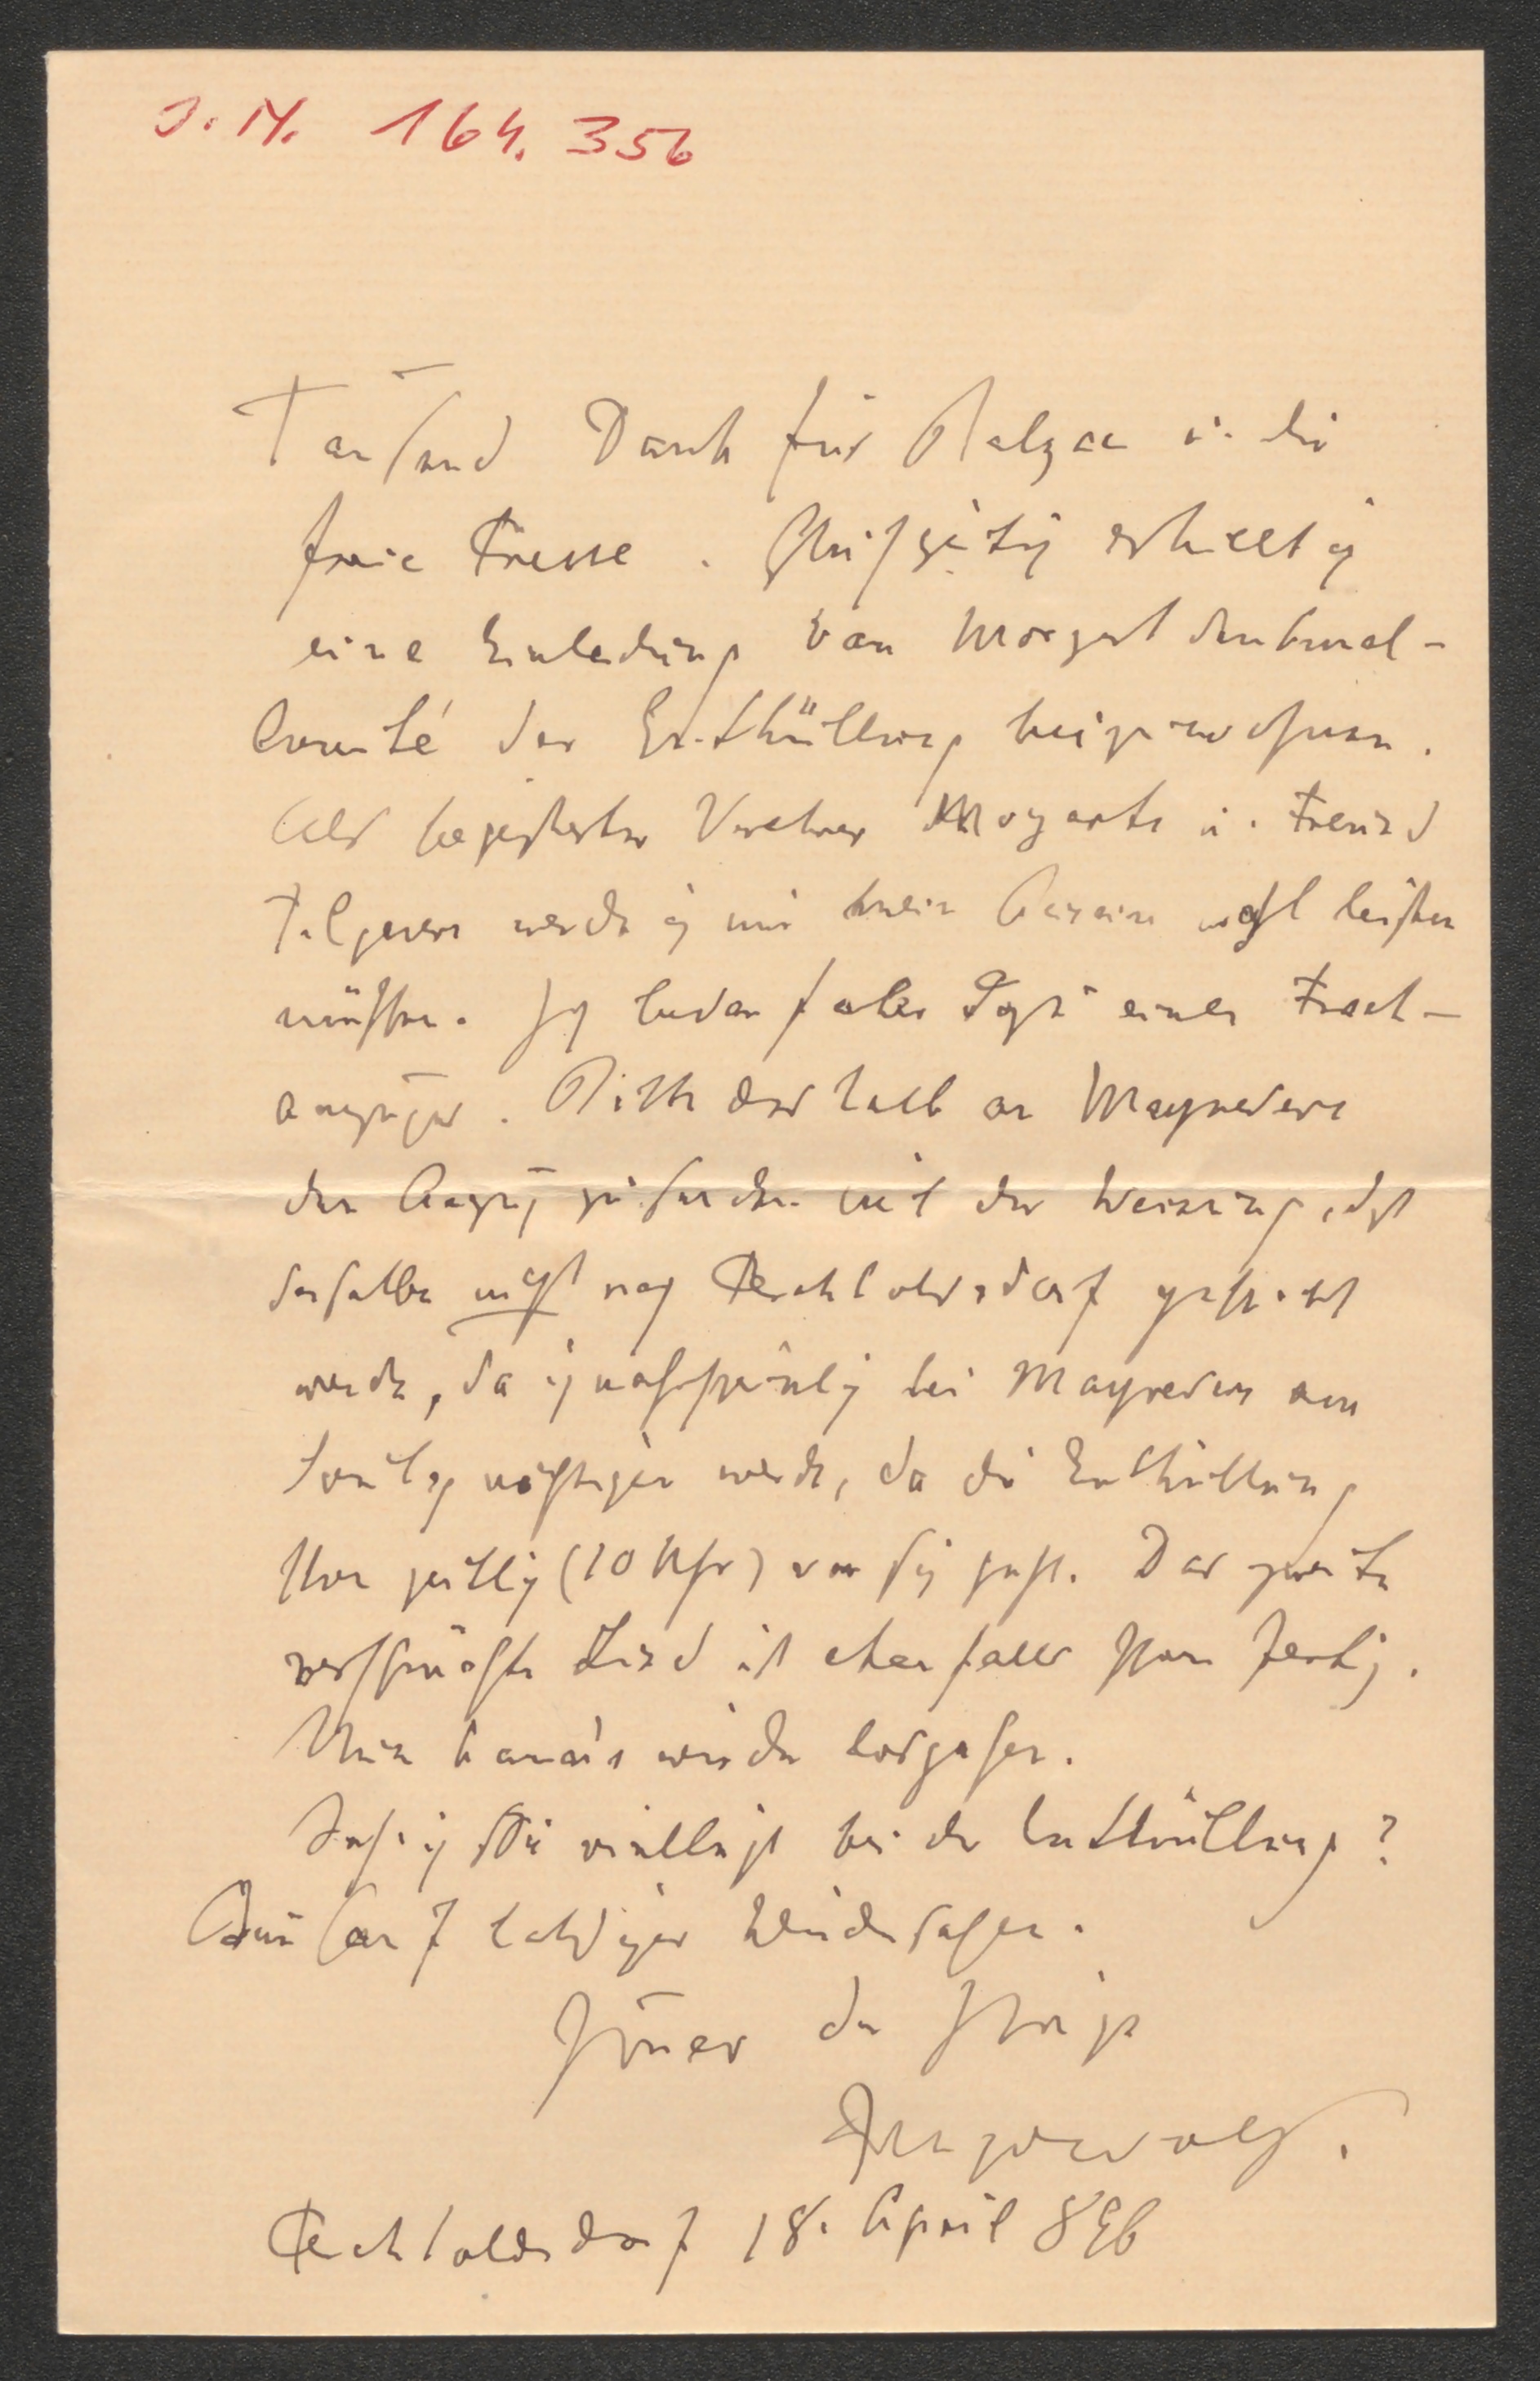 J. N. 164.356
Tausend Dank für Balzac u. die
freie Presse. Gleichzeitig erhielt ich
eine Einladung vom Mozartdenkmal-
Comité der Enthüllung beizuwohnen.
Als begeisterter Verehrer Mozarts u. Freund
Tilgners werde ich mir kein Absein nicht leisten
müssen. Ich bedarf aber dazu eines Frack-
anzuges. Bitte deshalb an Mayreders
den Anzug zu senden mit der Weisung, daß
derselbe nicht nach Perchtoldsdorf geschickt
werde, da ich wahrscheinlich bei Mayreders am
Sonntag nächtigen werde, da die Enthüllung
schon zeitlich (10 Uhr) vor sich geht. Das zweite
verschmähte Lied ist ebenfalls schon fertig.
Nun kann's wieder losgehen.
Sehe ich Sie vielleicht bei der Enthüllung?
Also auf baldiges Wiedersehen.
Immer der Ihrige
Hugo Wolf.
Perchtoldsdorf 18. April 896